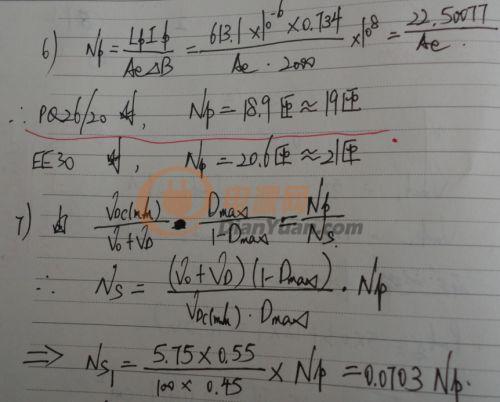 6) Np = LpIp / AeΔB = 613.1 × 10⁻⁶ × 0.734 / Ae · 2000 × 10⁸ = 22.50077 / Ae
∴ PQ26/20 时, Np = 18.9匝 ≈ 19匝
EE30 时, Np = 20.6匝 ≈ 21匝
电源网
DianYuan.com
7) 由 VDC(min) / Vo + VD · Dmax / 1-Dmax = Np / Ns
∴ Ns = (Vo + VD)(1-Dmax) / VDC(min) · Dmax · Np
⇒ Ns1 = 5.75 × 0.55 / 100 × 0.45 × Np = 0.0703 Np.